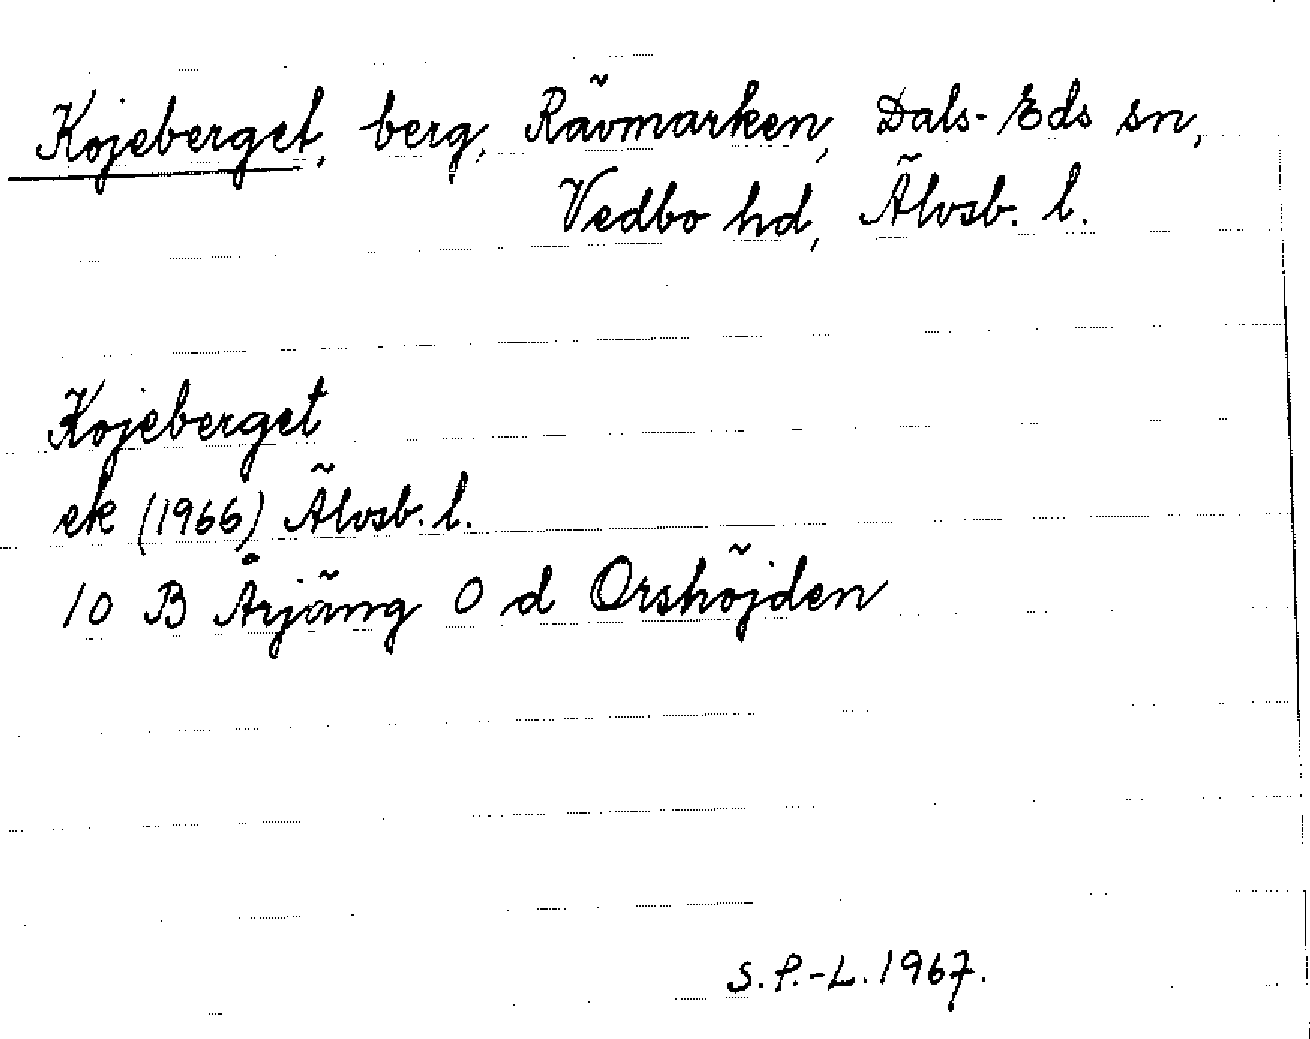 Kojeberget, berg, Rävmarken, Dals-Eds sn,
Vedbo hd, Älvsb. l.
Kojeberget
ek (1966) Älvsb. l.
10 B Årjäng 0 d Orshöjden
S.P.-L. 1967.